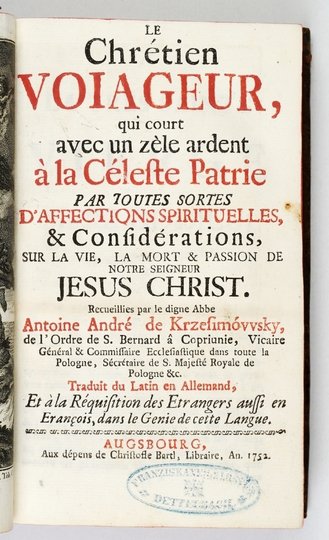 LE
Chrétien
VOIAGEUR,
qui court
avec un zèle ardent
à la Céleſte Patrie
PAR TOUTES SORTES
D'AFFECTIONS SPIRITUELLES,
& Conſidérations,
SUR LA VIE, LA MORT & PASSION DE
NOTRE SEIGNEUR
JESUS CHRIST.
Recueillies par le digne Abbe
Antoine André de Krzeſimóvvsky,
de l'Ordre de S. Bernard â Copriunie, Vicaire
Général & Commiſſaire Eccleſiaſtique dans toute la
Pologne, Sécrétaire de S. Majeſté Royale de
Pologne &c.
Traduit du Latin en Allemand,
Et à la Réquiſition des Etrangers auſſi en
Erançois, dans le Genie de cette Langue.
AUGSBOURG,
Aux dépens de Chriſtofle Bard, Libraire, An. 1752.
DETTELBACH